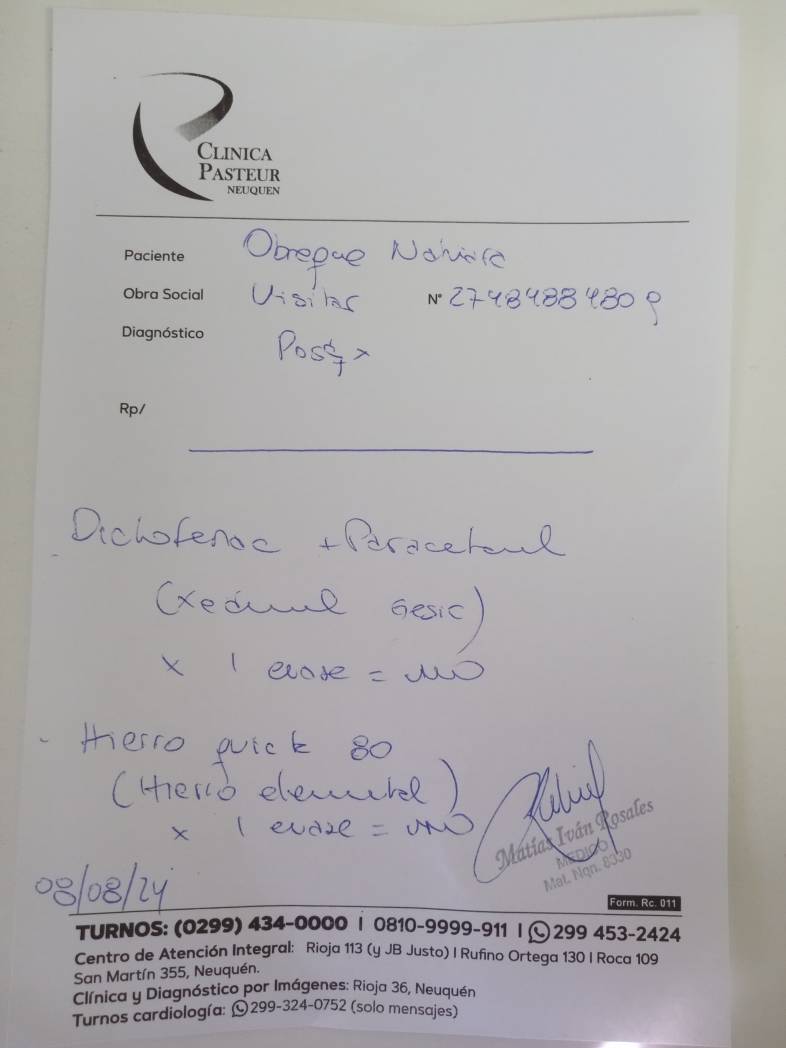 CLINICA
PASTEUR
NEUQUEN
Paciente Obreque Nahiara
Obra Social Visitar N° 27484884809
Diagnóstico
Rp/
Diclofenac + Paracetamol
(Xedenol Gesic)
x 1 envase = uno
- Hierro quick 80
(Hierro elemental)
x 1 envase = uno
Matías Iván Rosales
MEDICO
Mat. Nqn. 8330
08/08/24
Form. Rc. 011
TURNOS: (0299) 434-0000 | 0810-9999-911 | 299 453-2424
Centro de Atención Integral: Rioja 113 (y JB Justo) | Rufino Ortega 130 | Roca 109
San Martín 355, Neuquén.
Clínica y Diagnóstico por Imágenes: Rioja 36, Neuquén
Turnos cardiología: 299-324-0752 (solo mensajes)